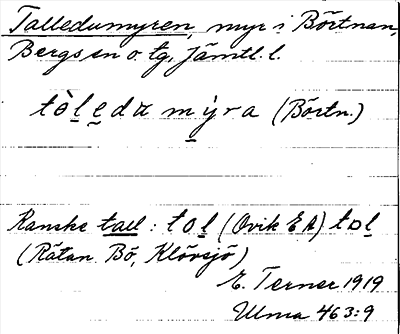 Talledumyren, myr i Börtnan,
Bergs sn o. tg, Jämtl. l.
tòledα mỳra (Börtn.)
Kanske tall: tol (Ovik EA) tol
(Rätan Bö, Klövsjö)
E. Terner 1919
Ulma 463:9